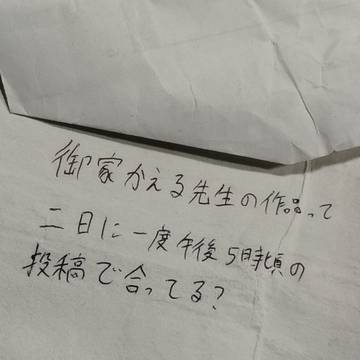 御家かえる先生の作品って
二日に一度午後5時頃の
投稿で合ってる?